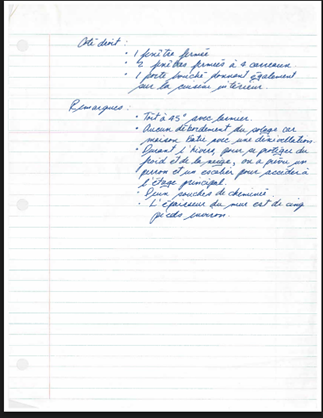 Côté droit :
• 1 fenêtre fermée
• 2 fenêtres fermées à 4 carreaux.
• 1 porte donnant également
sur la cuisine intérieur
Remarques :
• Toit à 45° avec larmier
• Aucun débordement du car
maison avec une dénivellation.
• Durant l'hiver, pour se protéger du
froid et de la neige, on a prévu un
perron et un escalier pour accéder à
l'étage principal.
• Deux souches de cheminée
• L'épaisseur du mur est de cinq
pieds environ.